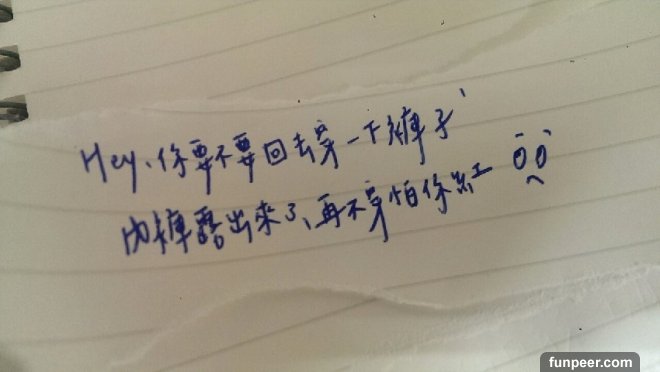 Hey、你要不要回去穿一下褲子，
內褲露出來了、再不穿怕你紅
funpeer.com